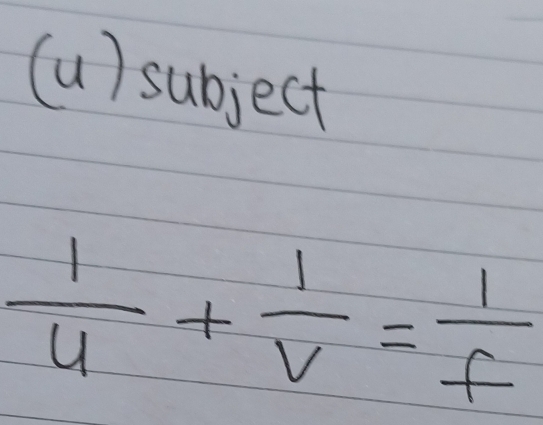 (u) subject
1/u + 1/v = 1/f